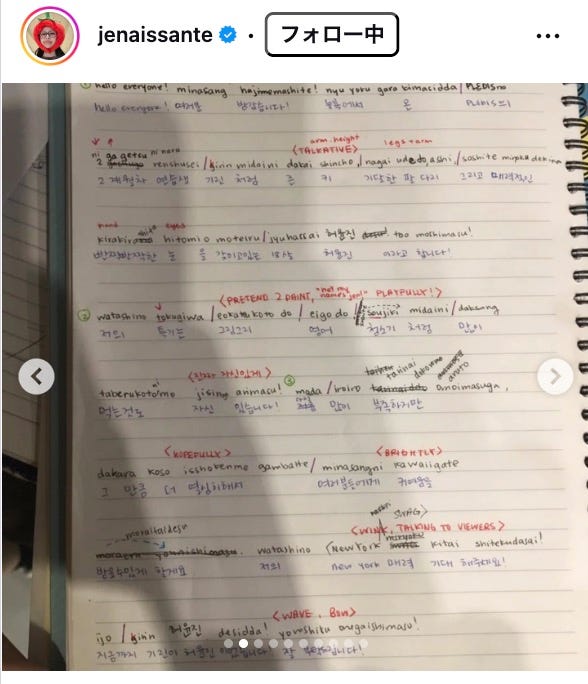 jenaissante
フォロー中
① hello everyone! minasang hajimemashite! nyu yoku gara kimacidda / PLEDIS no
hello everyone! 여러분 반갑습니다! 뉴욕에서 온 PLEDIS의
arm, height legs + arm
<TALKATIVE>
ni ga getsu ni nara
2 renshusei / girin midaini dakai shincho, / nagai ude do ashi, / soshite
2개월차 연습생 기린 처럼 큰 키 기다란 팔 다리 그리고 매력적인
hand eyes
kirakira shita hitomi o moteiru / jyuhassai 허윤진 too moshimasu!
반짝반짝한 눈 을 갖이고있는 18살 허윤진 이라고 합니다!
<PRETEND 2 PAINT, "hey my name's jen!" PLAYFULLY!>
② watashino tokugiwa / eokakukoto do / eigo do / soujiki midaini / daksang
저의 특기는 그림그리 영어 청소기 처럼 많이
<진짜 자신있게>
taberukoto mo jising arimasu! ③ mada / iroiro tarinai anoimasuga,
먹는건도 자신 있습니다! 많이 부족하지만
<HOPEFULLY> <BRIGHTLY>
dakara koso isshokenme gambatte / minasangni kawaiigate
그 만큼 더 열심히해서 여러분들에게 귀여움을
SWAG>
<WINK, TALKING TO VIEWERS>
moraitai desu
watashino (New York miryoku kitai shitekudasai!
받을수있게 할게요 저의 new york 매력 기대 해주세요!
<WAVE, BOW>
ijo / girin 허윤진 desidda! yoroshiku onegaishimasu!
지금까지 기린이 허윤진 이었습니다! 잘 부탁드립니다!